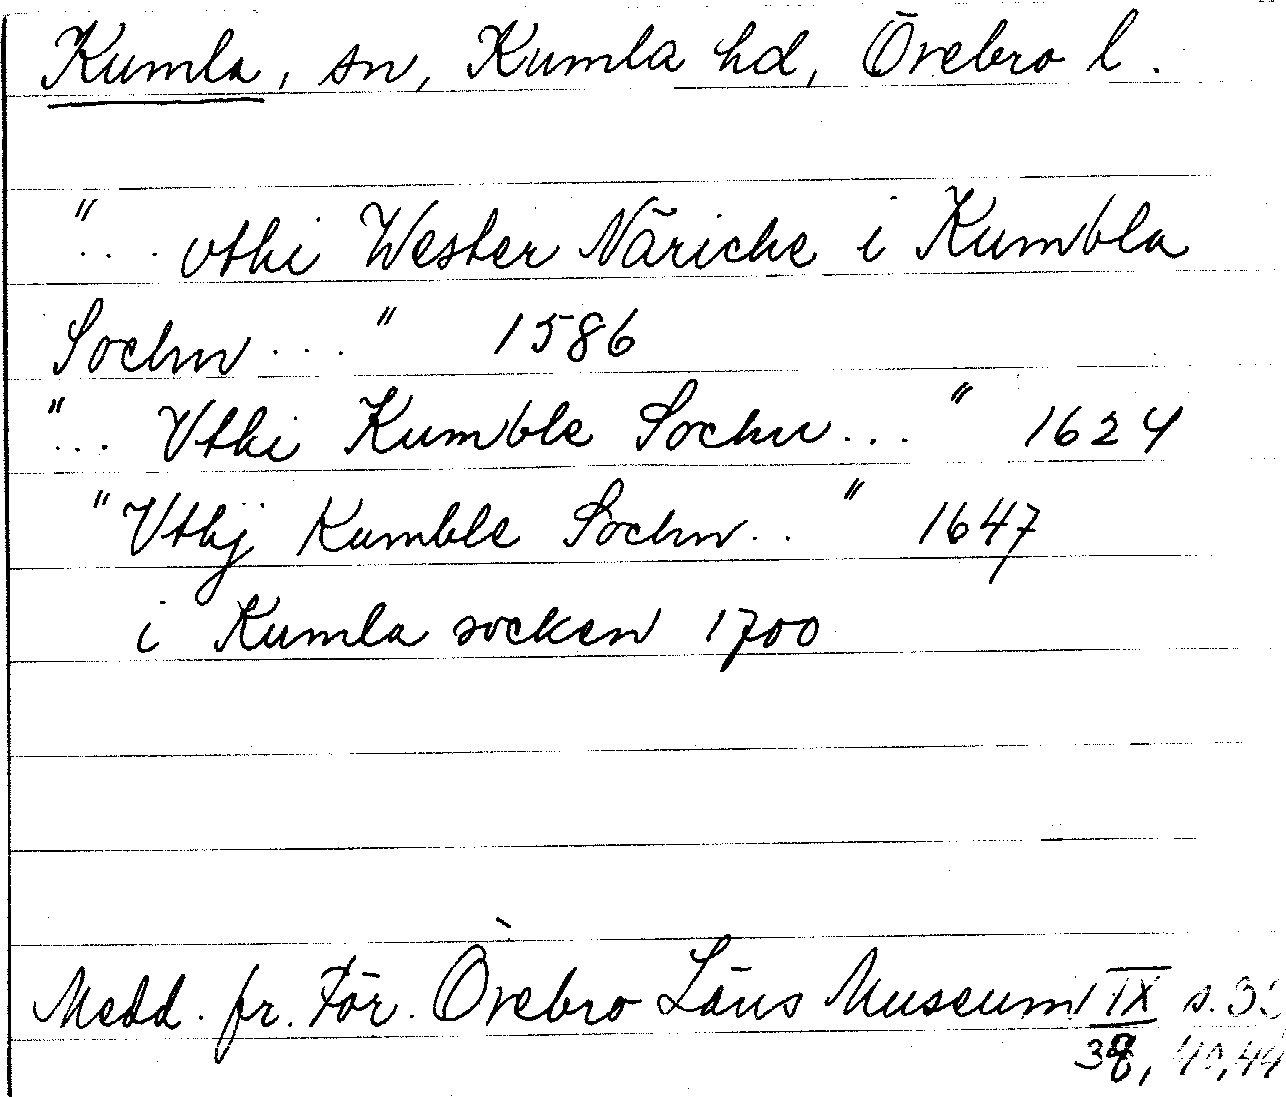 Kumla, sn, Kumla hd, Örebro l.
"... vthi Wester Näriche i Kumbla
Sochn ..." 1586
"... Vthi Kumble Sochn ..." 1624
"Vthj Kumble Sochn .." 1647
i Kumla socken 1700
Medd. fr. För. Örebro Läns Museum IX s.
38, 40, 44